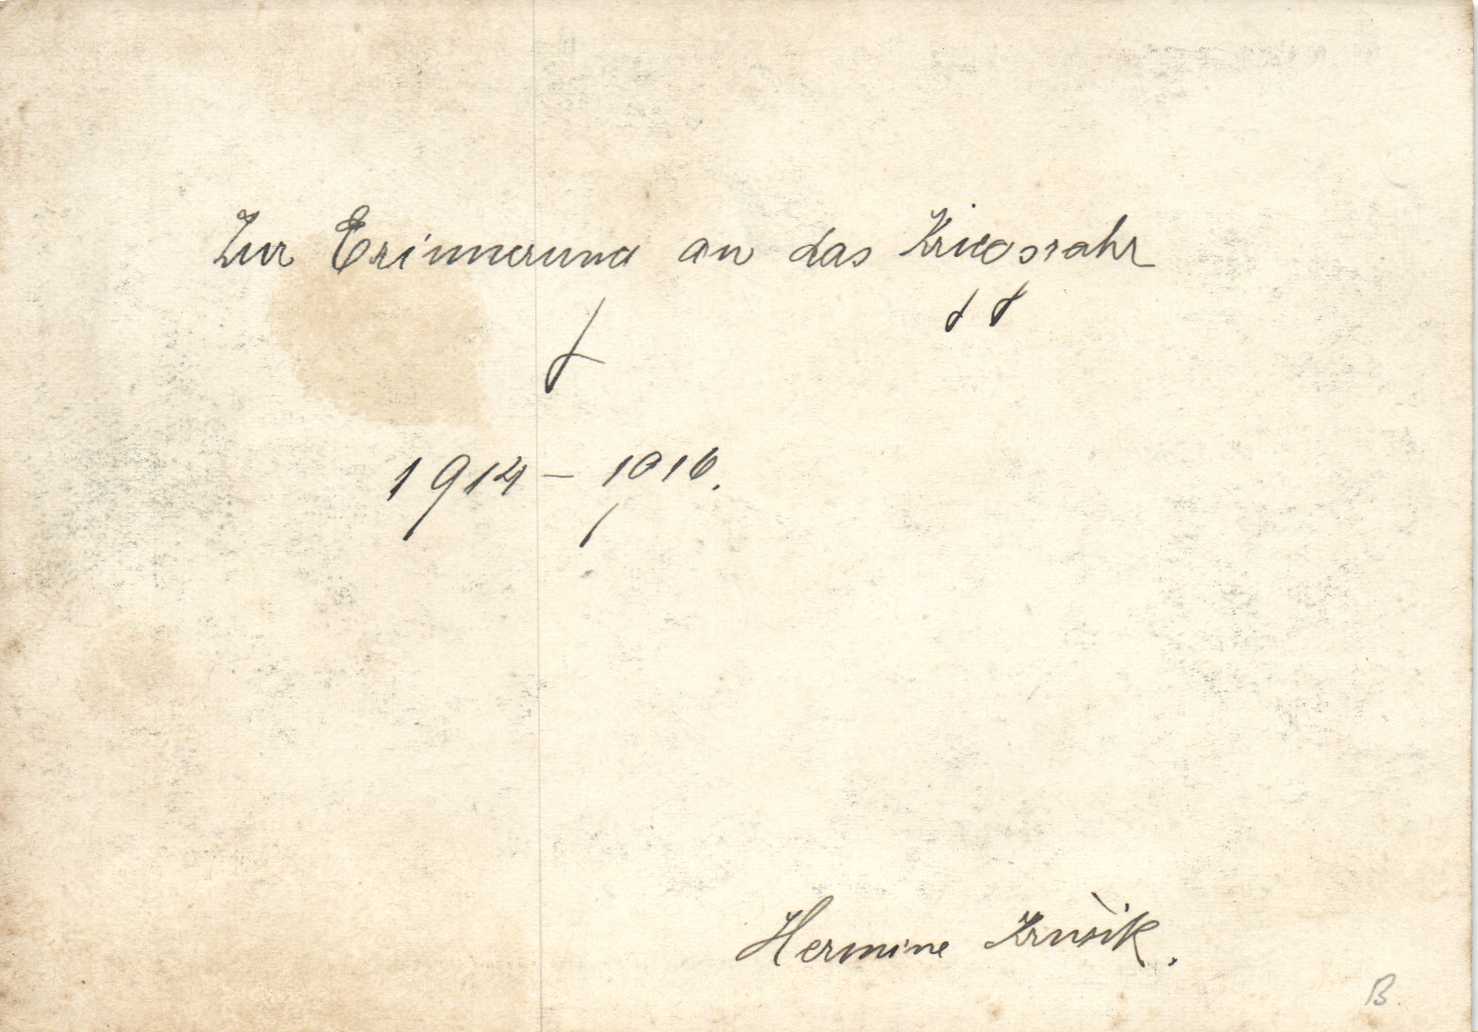 Zur Erinnerung an das Kriegsjahr
1914 – 1916.
Hermine Krušik.
B.